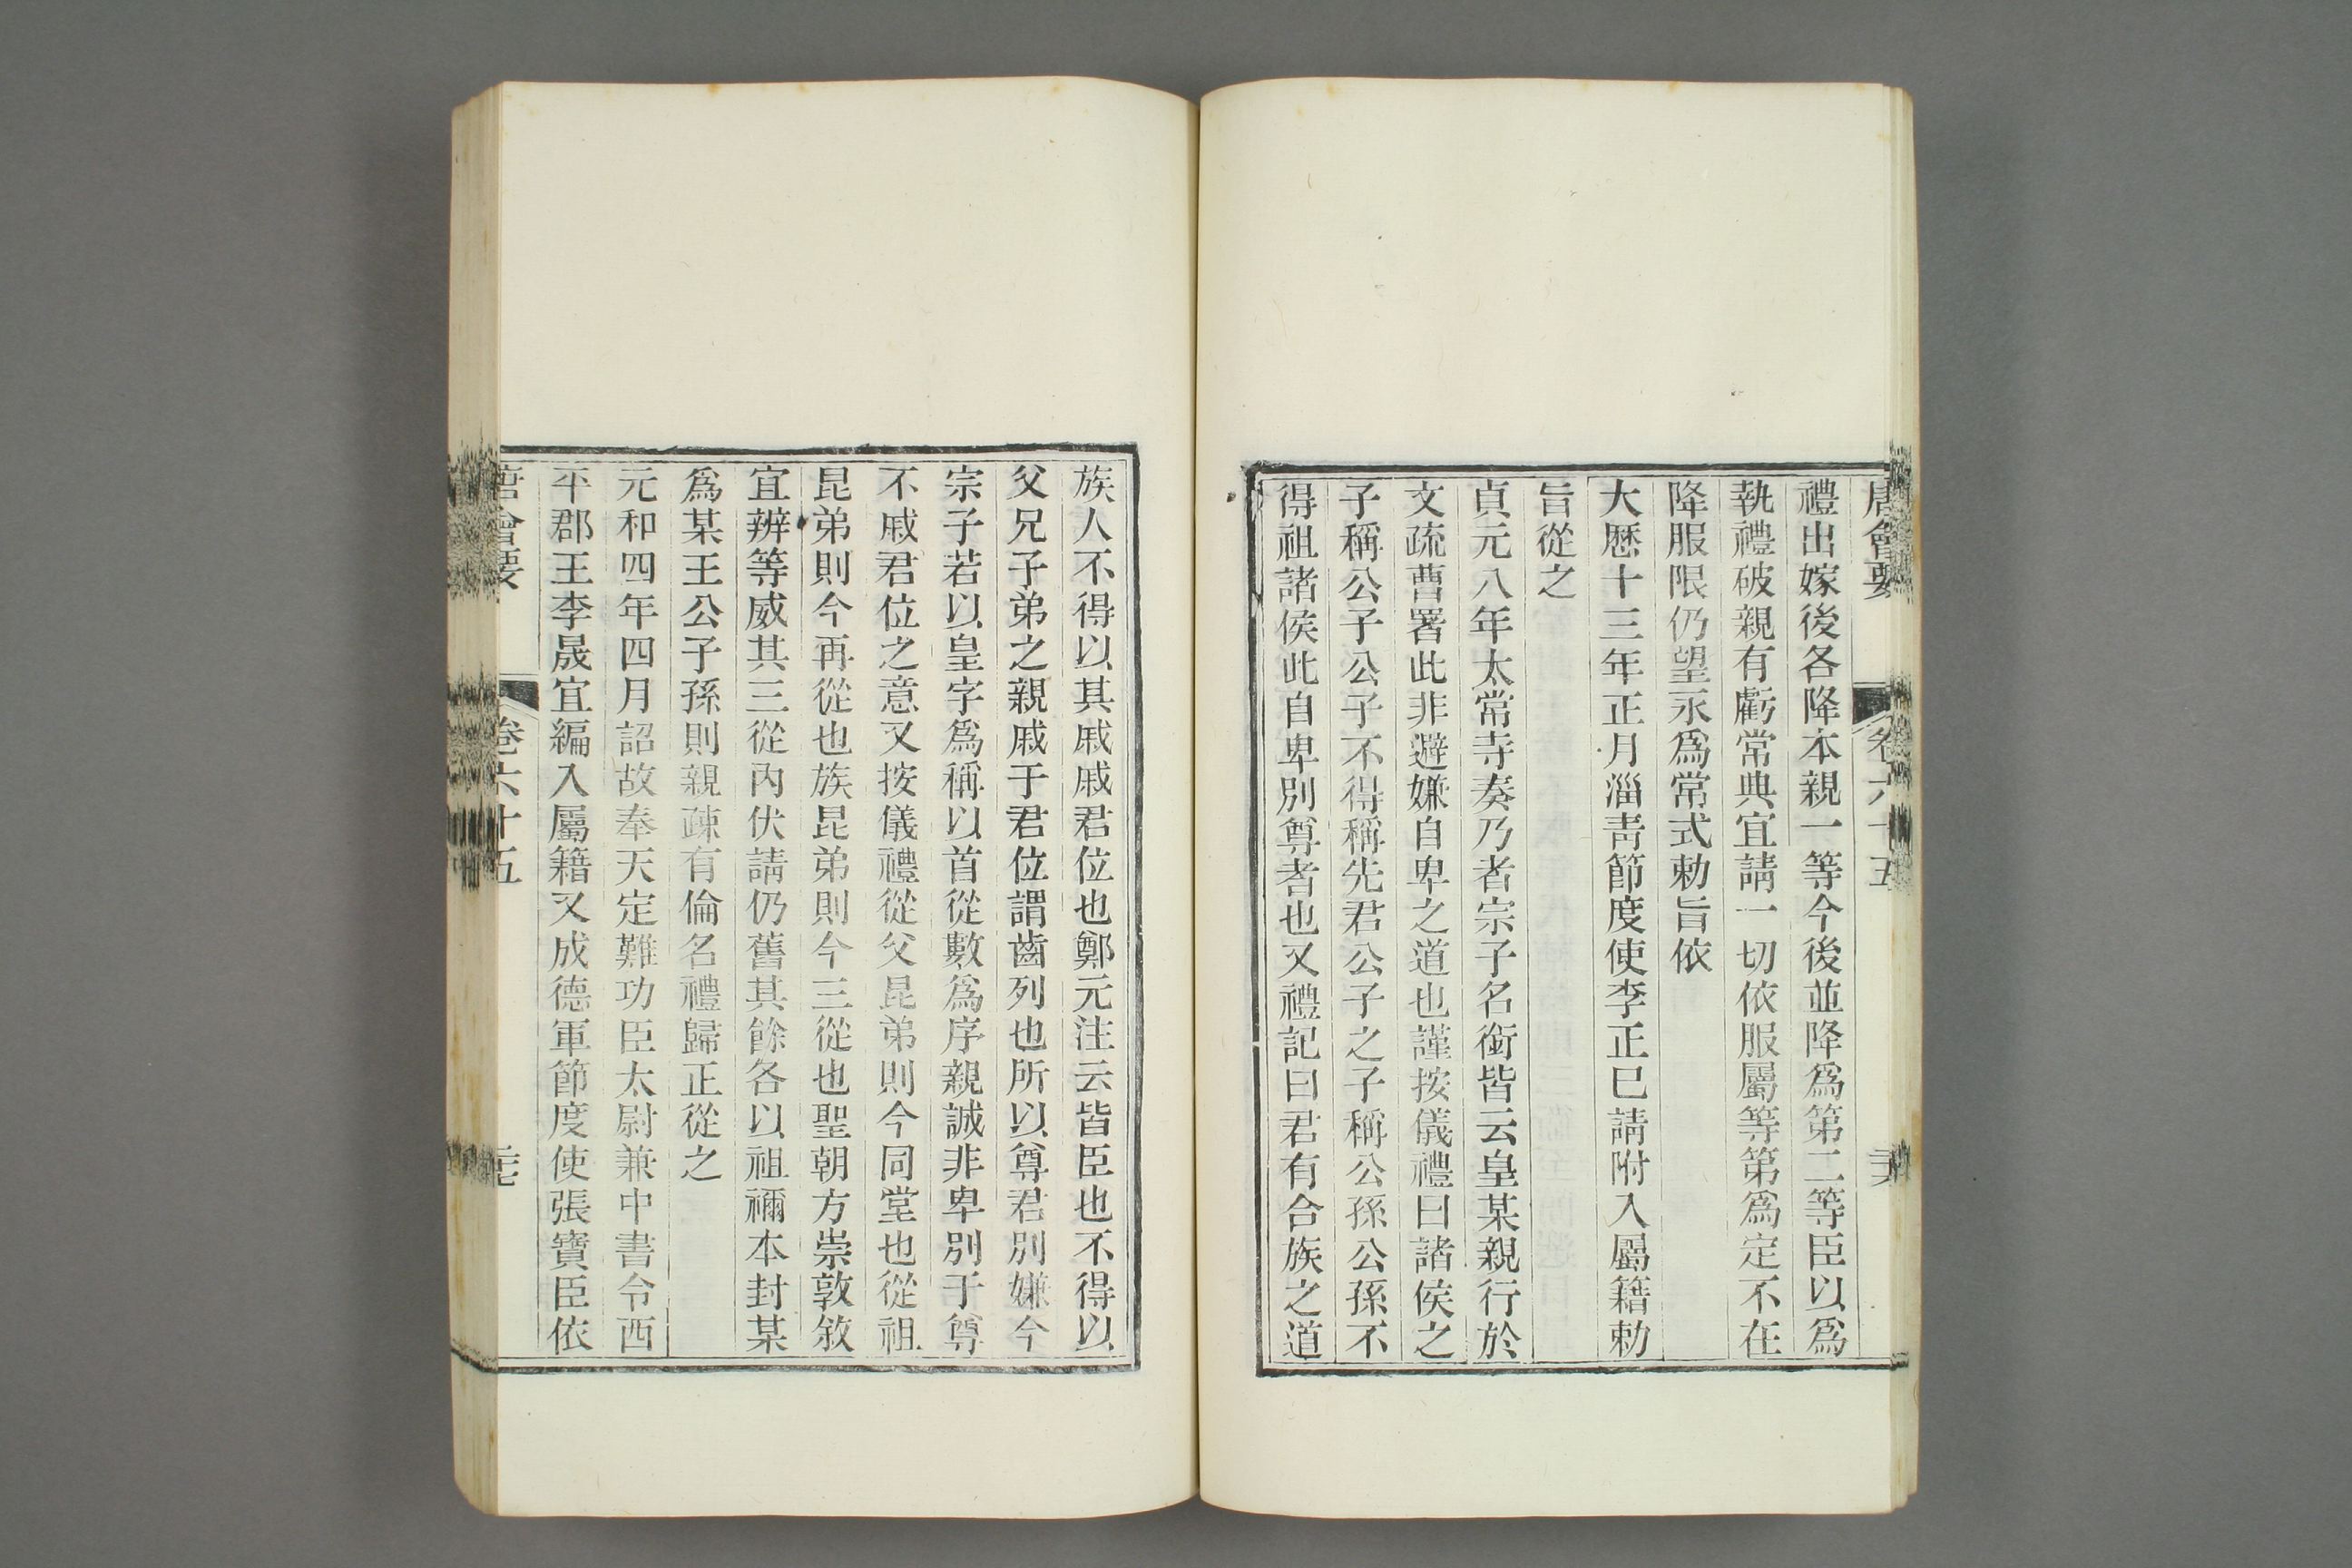 唐會要 卷六十五 三六
禮出嫁後各降本親一等今後並降爲第二等臣以爲
執禮破親有虧常典宜請一切依服屬等第爲定不在
降服限仍望永爲常式勅旨依
大曆十三年正月淄靑節度使李正巳請附入屬籍勅
旨從之
貞元八年太常寺奏乃者宗子名銜皆云皇某親行於
文疏曹署此非避嫌自卑之道也謹按儀禮曰諸侯之
子稱公子公子不得稱先君公子之子稱公孫公孫不
得祖諸侯此自卑別尊者也又禮記曰君有合族之道
族人不得以其戚戚君位也鄭元注云皆臣也不得以
父兄子弟之親戚于君位謂齒列也所以尊君別嫌今
宗子若以皇字爲稱以首從數爲序親誠非卑別于尊
不戚君位之意又按儀禮從父昆弟則今同堂也從祖
昆弟則今再從也族昆弟則今三從也聖朝方崇敦敘
宜辨等威其三從內伏請仍舊其餘各以祖禰本封某
爲某王公子孫則親疎有倫名禮歸正從之
元和四年四月詔故奉天定難功臣太尉兼中書令西
平郡王李晟宜編入屬籍又成德軍節度使張寶臣依
唐會要 卷六十五